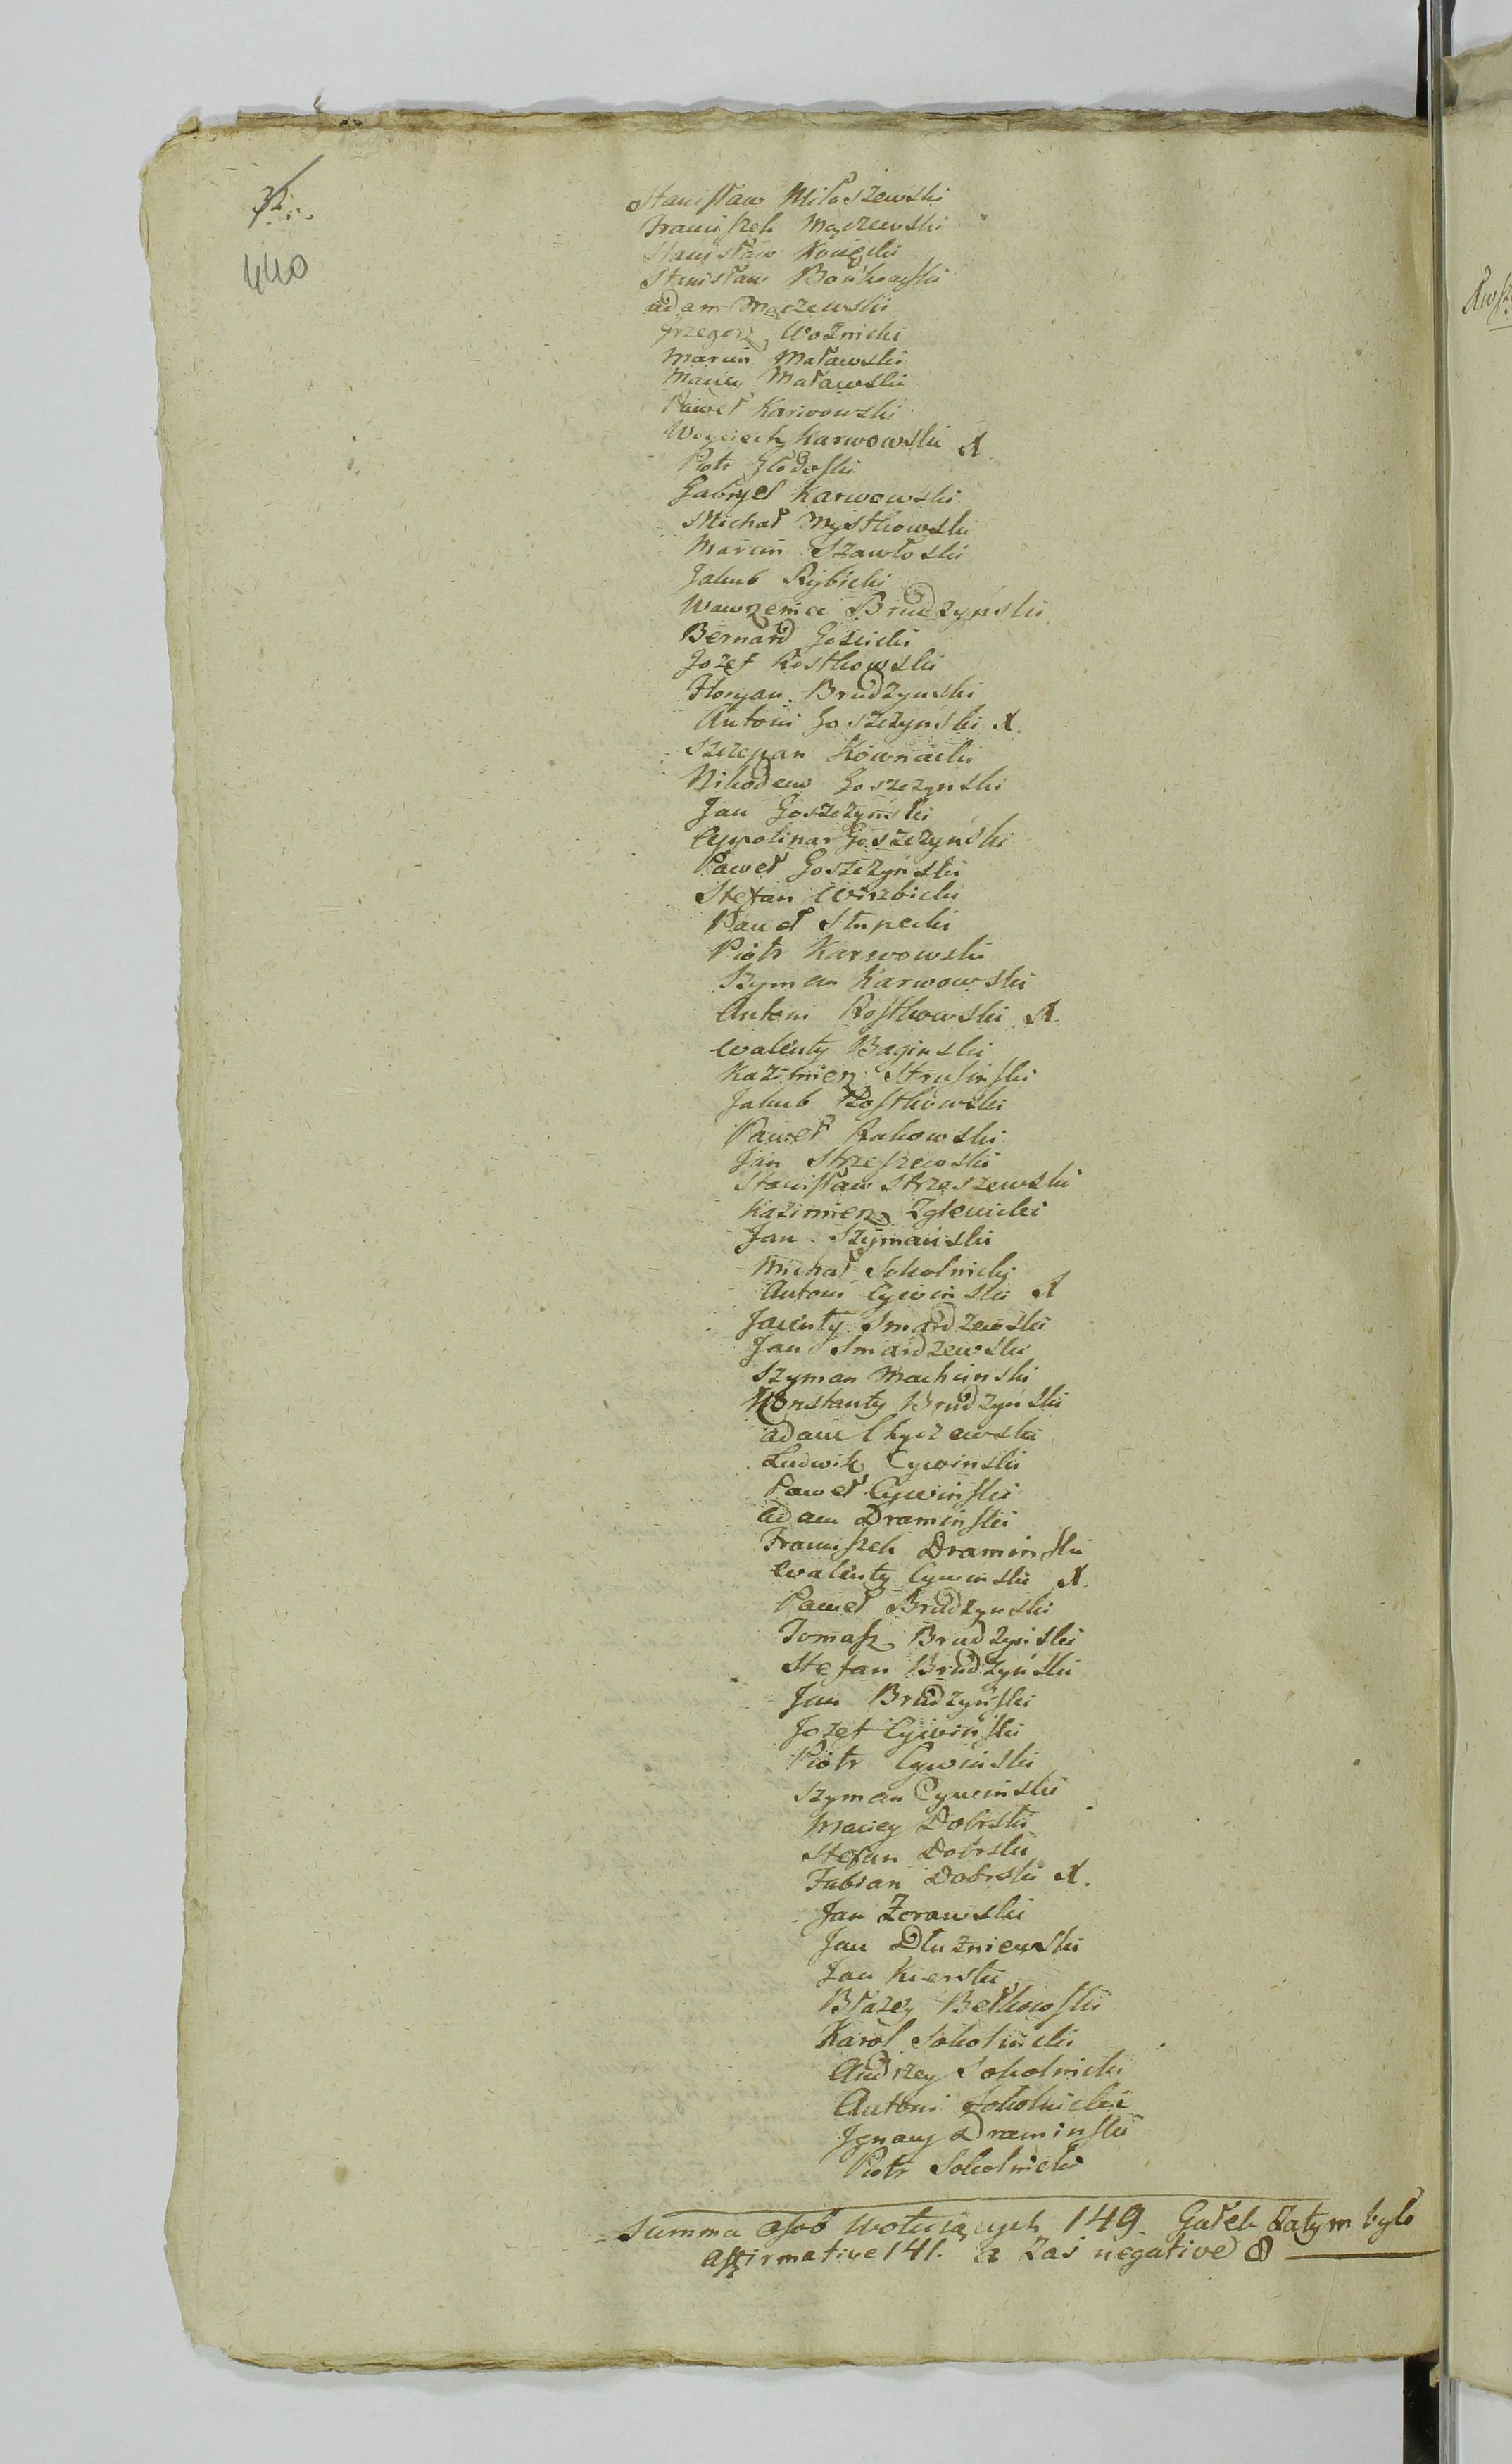 32.
440
Stanisław Miłoszewski
Franciszek Mączewski
Stanisław Konicki
Stanisław Bońkowski
Adam Mączewski
Grzegorz Woźnicki
Marcin Maławski
Maciey Maławski
Paweł Karwowski
Woyciech Karwowski X.
Piotr Głodoski
Gabryel Karwowski
Michał Mystkowski
Marcin Szawłoski
Jakub Rybicki
Wawrzeniec Brudzyński
Bernard Gościcki
Jozef Rostkowski
Floryan Brudzynski
Antoni Goszczyński X.
Szczepan Kownacki
Nikodem Goszczynski
Jan Goszczyński
Appolinar Goszczyński
Paweł Goszczyński
Stefan Wirzbicki
Paweł Słupecki
Piotr Karwowski
Szyman Karwowski
Antoni Rostkowski X.
Walenty Baginski
Kazimierz Strusinski
Jakub Rostkowski
Paweł Rakowski
Jan Strzeszewski
Stanisław Strzeszewski
Kazimierz Zglenicki
Jan Szymański
Michał Sokolnicki
Antoni Cywinski X
Jacenty Smardzewski
Jan Smardzewski
Szyman Machcinski
Konstanty Brudzyński
Adam Chyczewski
Ludwik Cywinski
Paweł Cywiński
Adam Draminski
Franciszek Draminski
Walenty Cywinski X.
Paweł Brudzynski
Tomasz Brudzyński
Stefan Brudzyński
Jan Brudzyński
Jozef Cywiński
Piotr Cywiński
Szyman Cywinski
Maciey Dobrski
Stefan Dobrski
Fabian Dobrski X.
Jan Zorawski
Jan Dłuzniewski
Jan Kierski
Błazey Bełkowski
Karol Sokolnicki
Andrzey Sokolnicki
Antoni Sokolnicki
Jgnacy Draminski
Piotr Sokolnicki
Summa osob wotuiących 149. Gałek zatym było
affirmative 141. a zaś negative 8